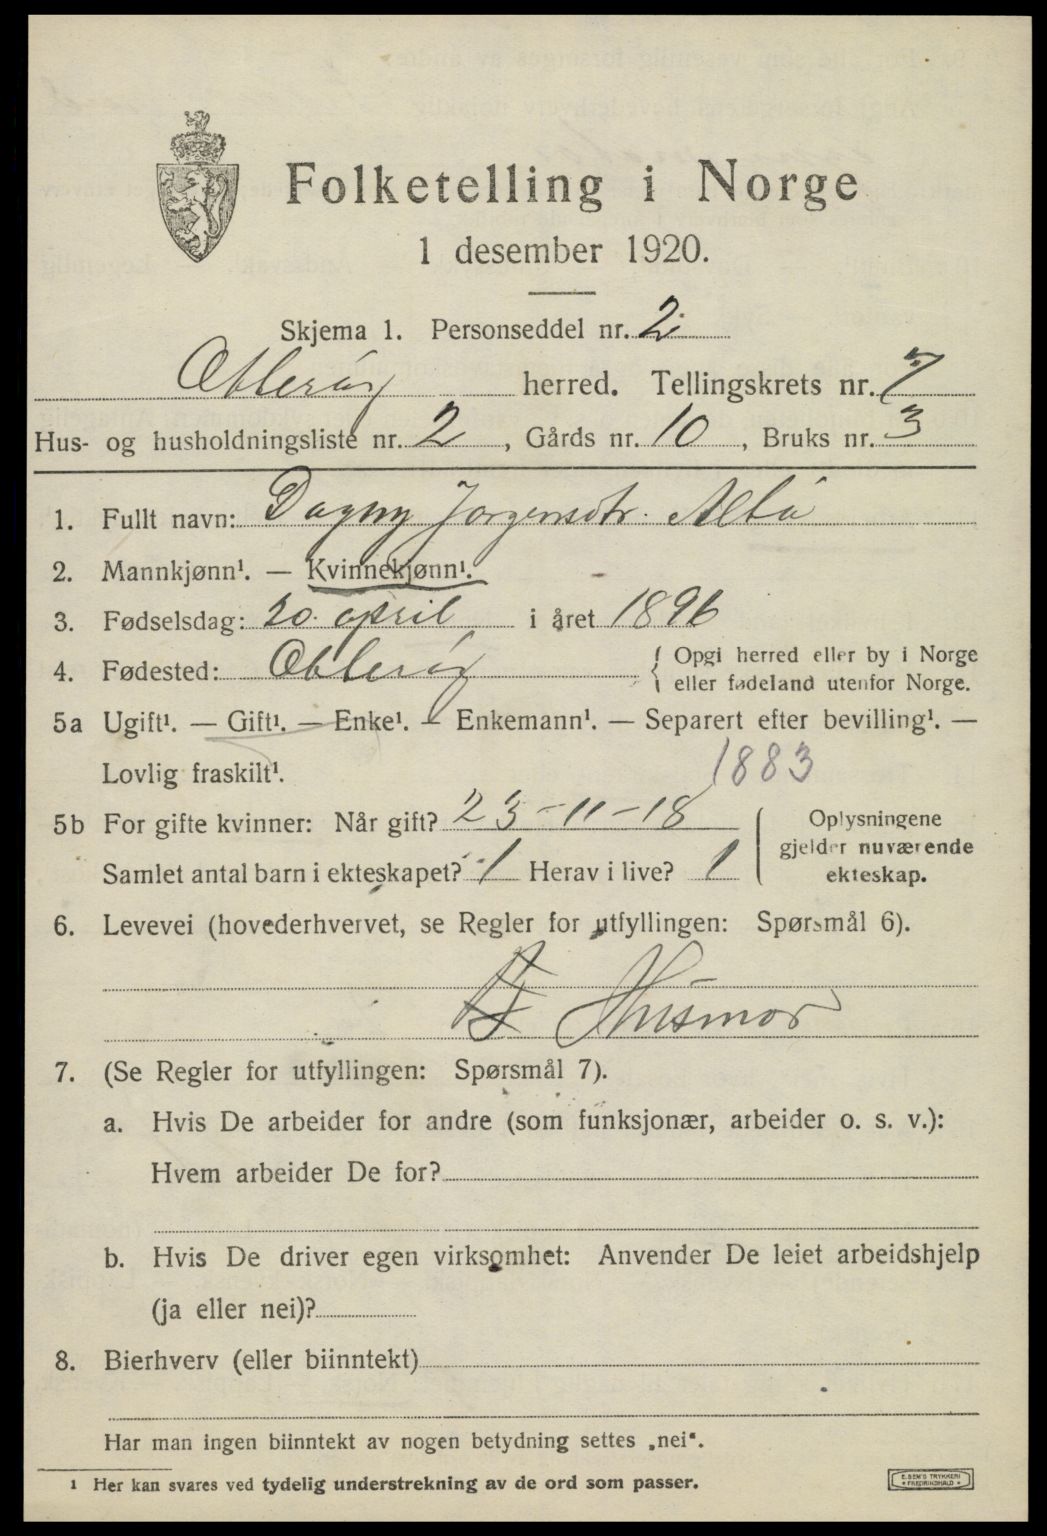 Folketelling i Norge
1 desember 1920.
Skjema 1. Personseddel nr. 2
Otterøy herred. Tellingskrets nr. 7
Hus- og husholdningsliste nr. 2, Gårds nr. 10, Bruks nr. 3
1. Fullt navn: Dagny Jørgensdtr. Altå
2. Mannkjønn¹. — Kvinnekjønn¹.
3. Fødselsdag: 20. april i året 1896
4. Fødested: Otterøy { Opgi herred eller by i Norge
eller fødeland utenfor Norge.
5a Ugift¹. — Gift¹. — Enke¹. — Enkemann¹. — Separert efter bevilling¹. —
Lovlig fraskilt¹. 1883
5b For gifte kvinner: Når gift? 23-11-18
Samlet antal barn i ekteskapet? 1 Herav i live? 1
Oplysningene
gjelder nuværende
ekteskap.
6. Levevei (hovederhvervet, se Regler for utfyllingen: Spørsmål 6).
Husmor
7. (Se Regler for utfyllingen: Spørsmål 7).
a. Hvis De arbeider for andre (som funksjonær, arbeider o. s. v.):
Hvem arbeider De for?
b. Hvis De driver egen virksomhet: Anvender De leiet arbeidshjelp
(ja eller nei)?
8. Bierhverv (eller biinntekt)
Har man ingen biinntekt av nogen betydning settes „nei“.
¹ Her kan svares ved tydelig understrekning av de ord som passer.
E. SEM'S TRYKKERI
FREDRIKSHALD